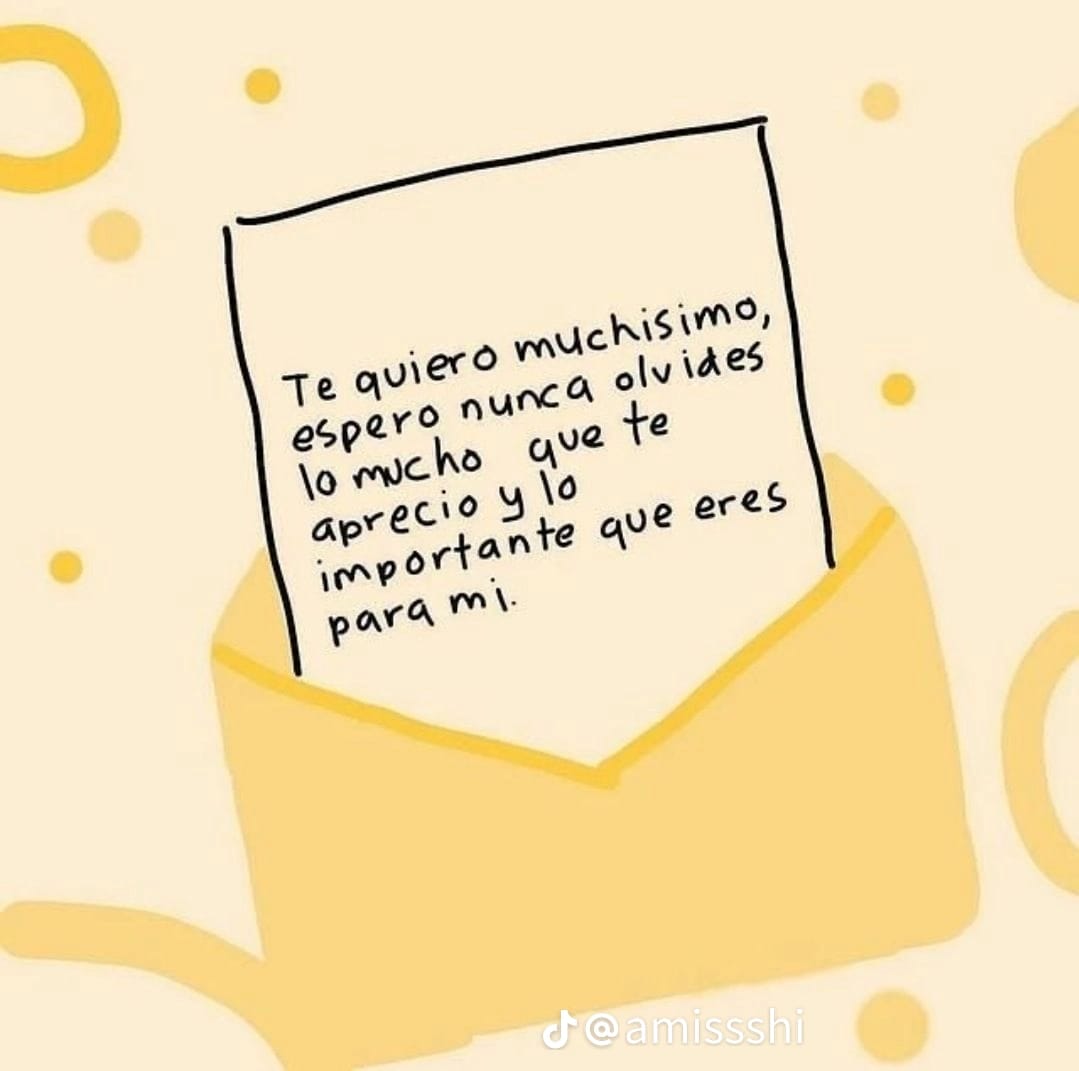 Te quiero muchisimo,
espero nunca olvides
lo mucho que te
aprecio y lo
importante que eres
para mi.
@amissshi